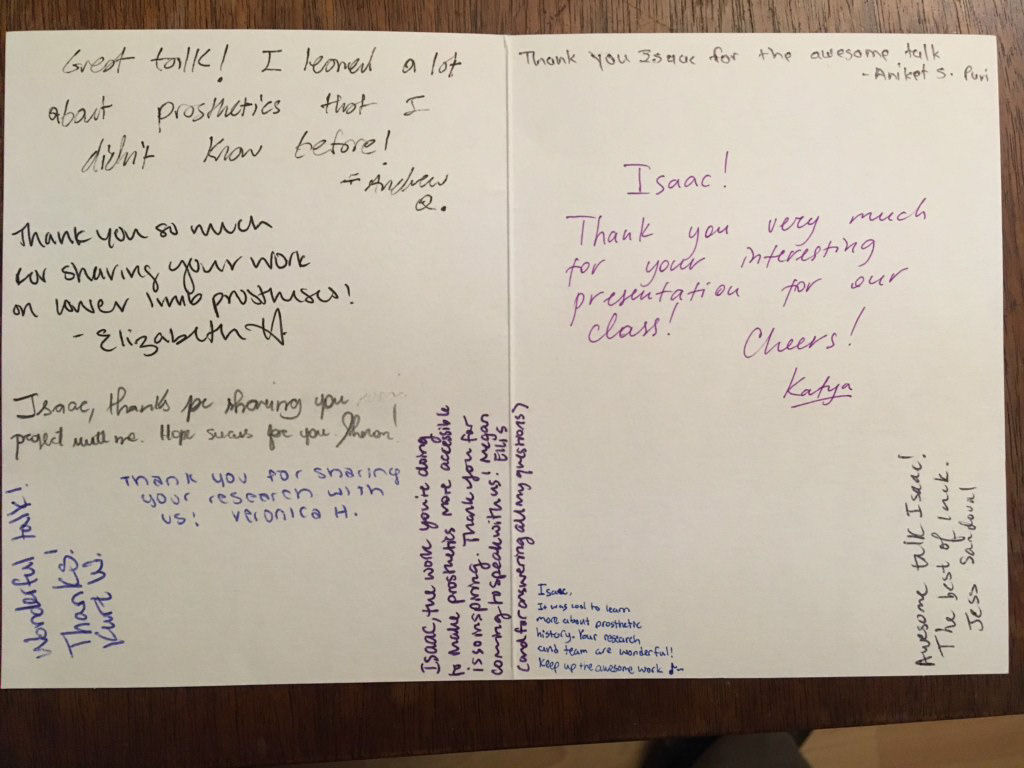 Great talk! I learned a lot
about prosthetics that I
didn't know before!
- Andrew
Q.
Thank you so much
for sharing your work
on lower limb prostheses!
- Elizabeth
Isaac, thanks for sharing you
project with me. Hope for you
Thank you for sharing
your research with
us! Veronica H.
Wonderful talk!
Thanks!
Kurt W.
Isaac, the work you're doing
to make prosthetics more accessible
is so inspiring. Thank you for
coming to speak with us! Megan
Ellis
(and for answering all my questions)
Thank you Isaac for the awesome talk
- Aniket S. Puri
Isaac!
Thank you very much
for your interesting
presentation for our
class!
Cheers!
Katya
Isaac,
It was cool to learn
more about prosthetic
history. Your research
and team are wonderful!
Keep up the awesome work
Awesome talk Isaac!
The best of luck.
Jess Sandoval